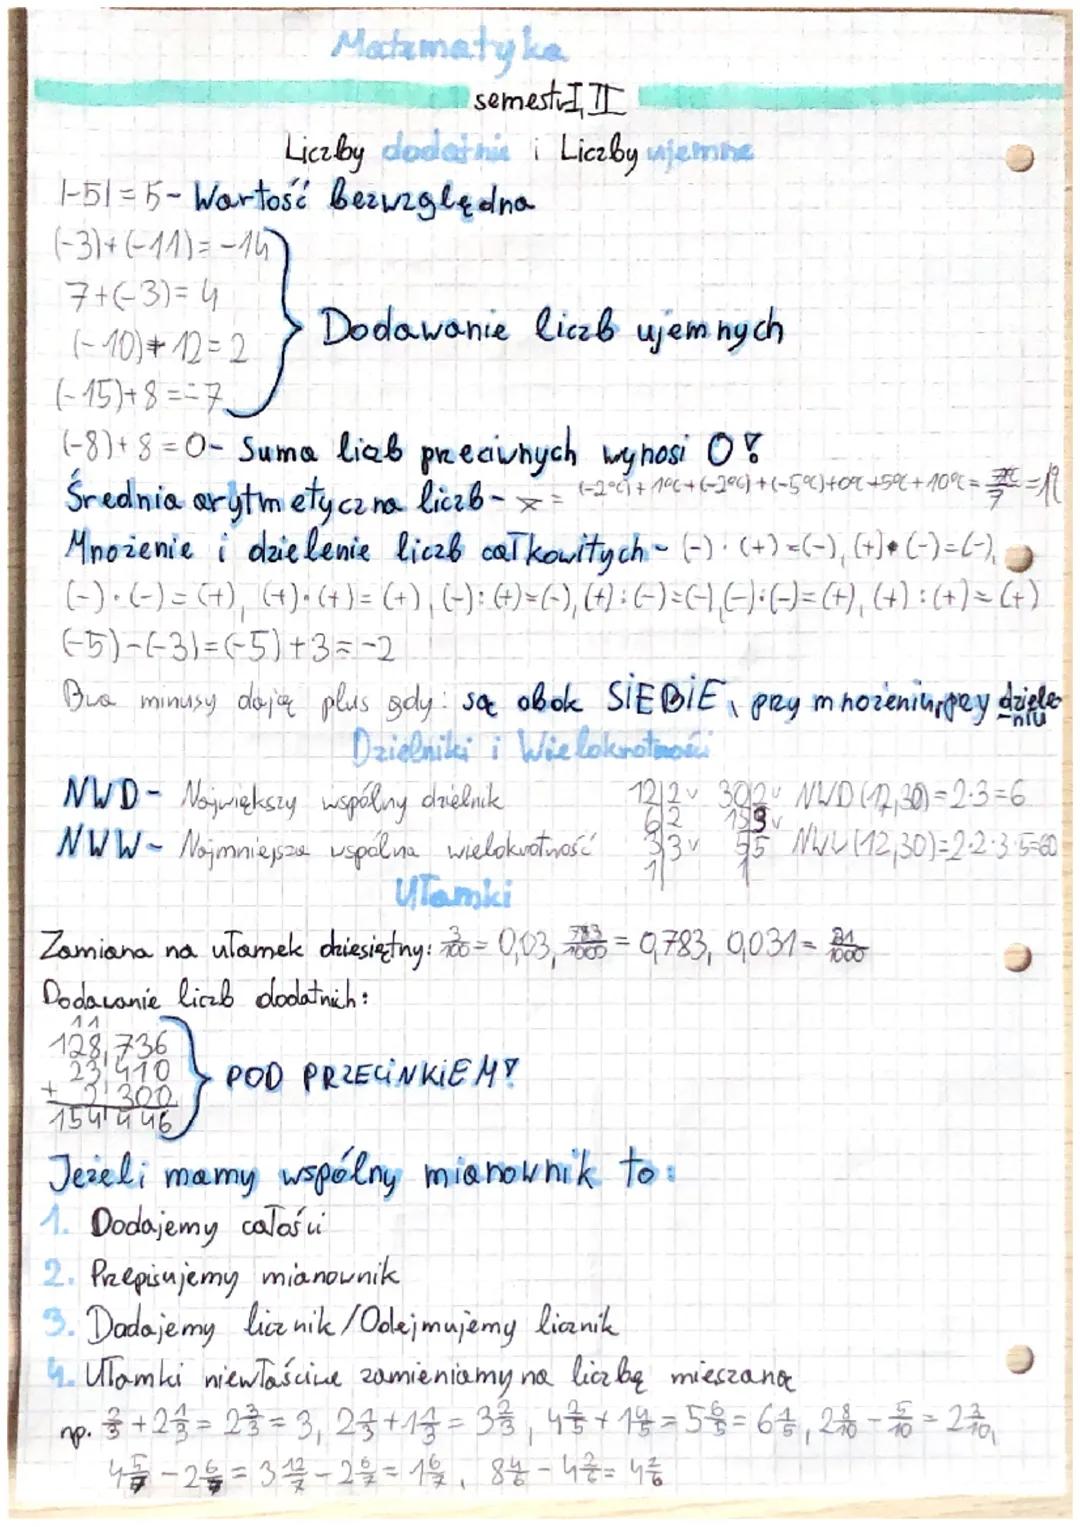 Matematyka
semestr I, II
Liczby dodatnie i Liczby ujemne
|-5| = 5 - Wartość bezwzględna
(-3)+(-11)= -14
7+(-3)= 4
(-10)+12=2
(-15)+8 =-7
Dodawanie liczb ujemnych
(-8)+8=0- Suma liczb przeciwnych wynosi 0!
Średnia arytmetyczna liczb- x = (-2°C)+1°C+(-2°C)+(-5°C)+0°C+5°C+10°C= 7°C/7 =1°C
Mnożenie i dzielenie liczb całkowitych- (-)·(+)=(-), (+)·(-)=(-),
(-)·(-)=(+), (+)·(+)=(+), (-):(+)=(-), (+):(-)=(-), (-):(-)=(+), (+):(+)=(+)
(-5)-(-3)=(-5)+3=-2
Dwa minusy dają plus gdy: są obok SIEBIE, przy mnożeniu, przy dziele-
niu
Dzielniki i Wielokrotności
NWD- Największy wspólny dzielnik
NWW- Najmniejsza wspólna wielokrotność
12|2 v 30|2 v NWD(12,30)=2·3=6
6|2 15|3 v
3|3 v 5|5 NWW(12,30)=2·2·3·5=60
1| 1|
Ułamki
Zamiana na ułamek dziesiętny: 3/100 = 0,03, 783/1000 = 0,783, 0,031= 31/1000
Dodawanie liczb dodatnich:
11
128,736
23,410
+ 2,300
154,446
POD PRZECINKIEM!
Jeżeli mamy wspólny mianownik to:
1. Dodajemy całości
2. Przepisujemy mianownik
3. Dodajemy licznik/Odejmujemy licznik
4. Ułamki niewłaściwe zamieniamy na liczbę mieszaną
np. 2/3 + 2 1/3 = 2 3/3 = 3, 2 1/3 + 1 1/3 = 3 2/3, 4 2/5 + 1 4/5 = 5 6/5 = 6 1/5, 2 8/10 - 5/10 = 2 3/10,
4 5/7 - 2 6/7 = 3 12/7 - 2 6/7 = 1 6/7, 8 4/6 - 4 2/6 = 4 2/6